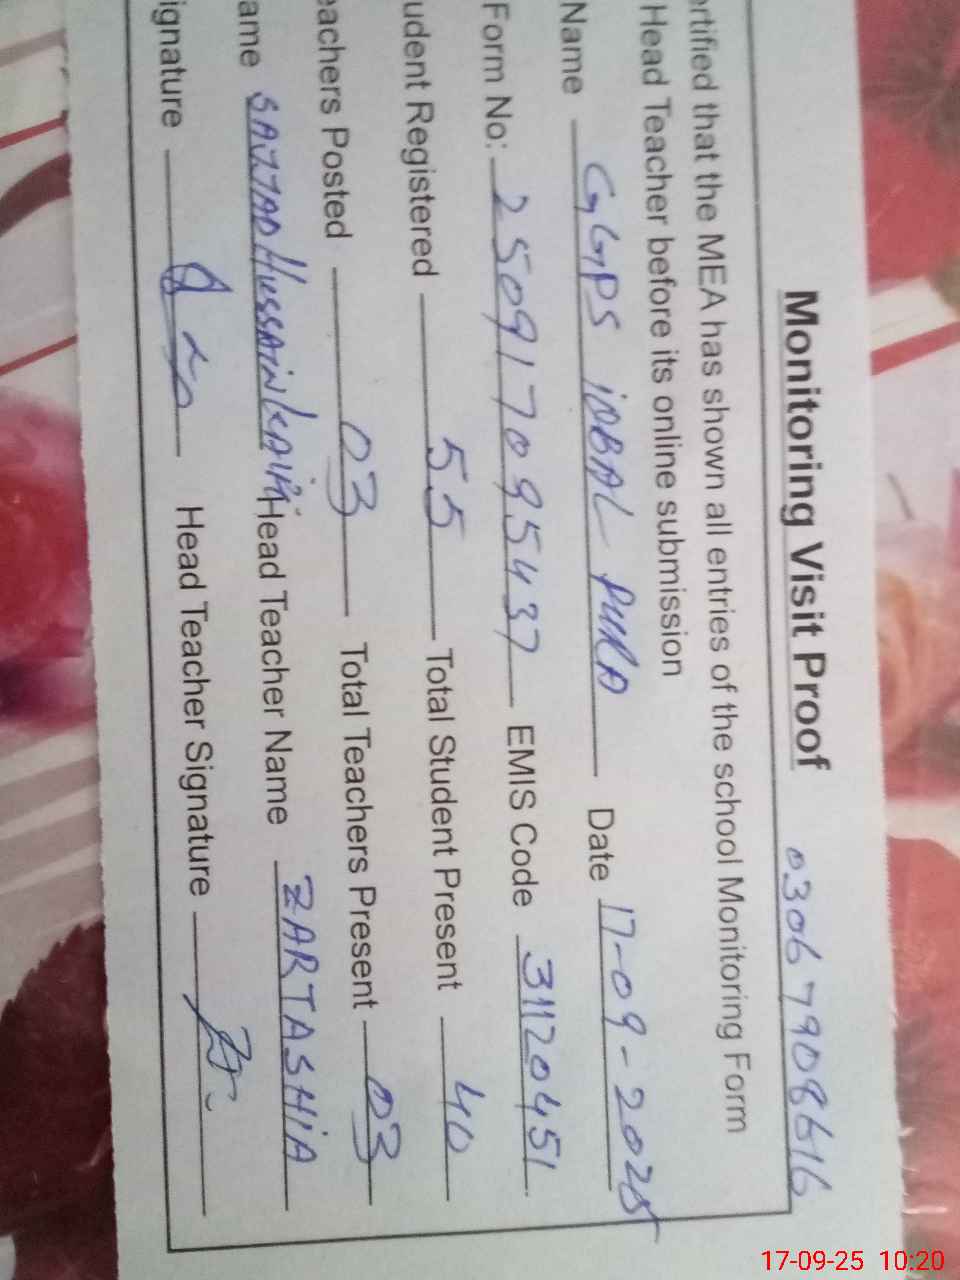 Monitoring Visit Proof 03067908616
ertified that the MEA has shown all entries of the school Monitoring Form
Head Teacher before its online submission
Name GGPS iQBAL PURA Date 17-09-2025
Form No: 250917095437 EMIS Code 31120451
udent Registered 55 Total Student Present 40
eachers Posted 03 Total Teachers Present 03
ame SAJJAD HUSSAIN Head Teacher Name ZARTASHIA
ignature Head Teacher Signature
17-09-25 10:20